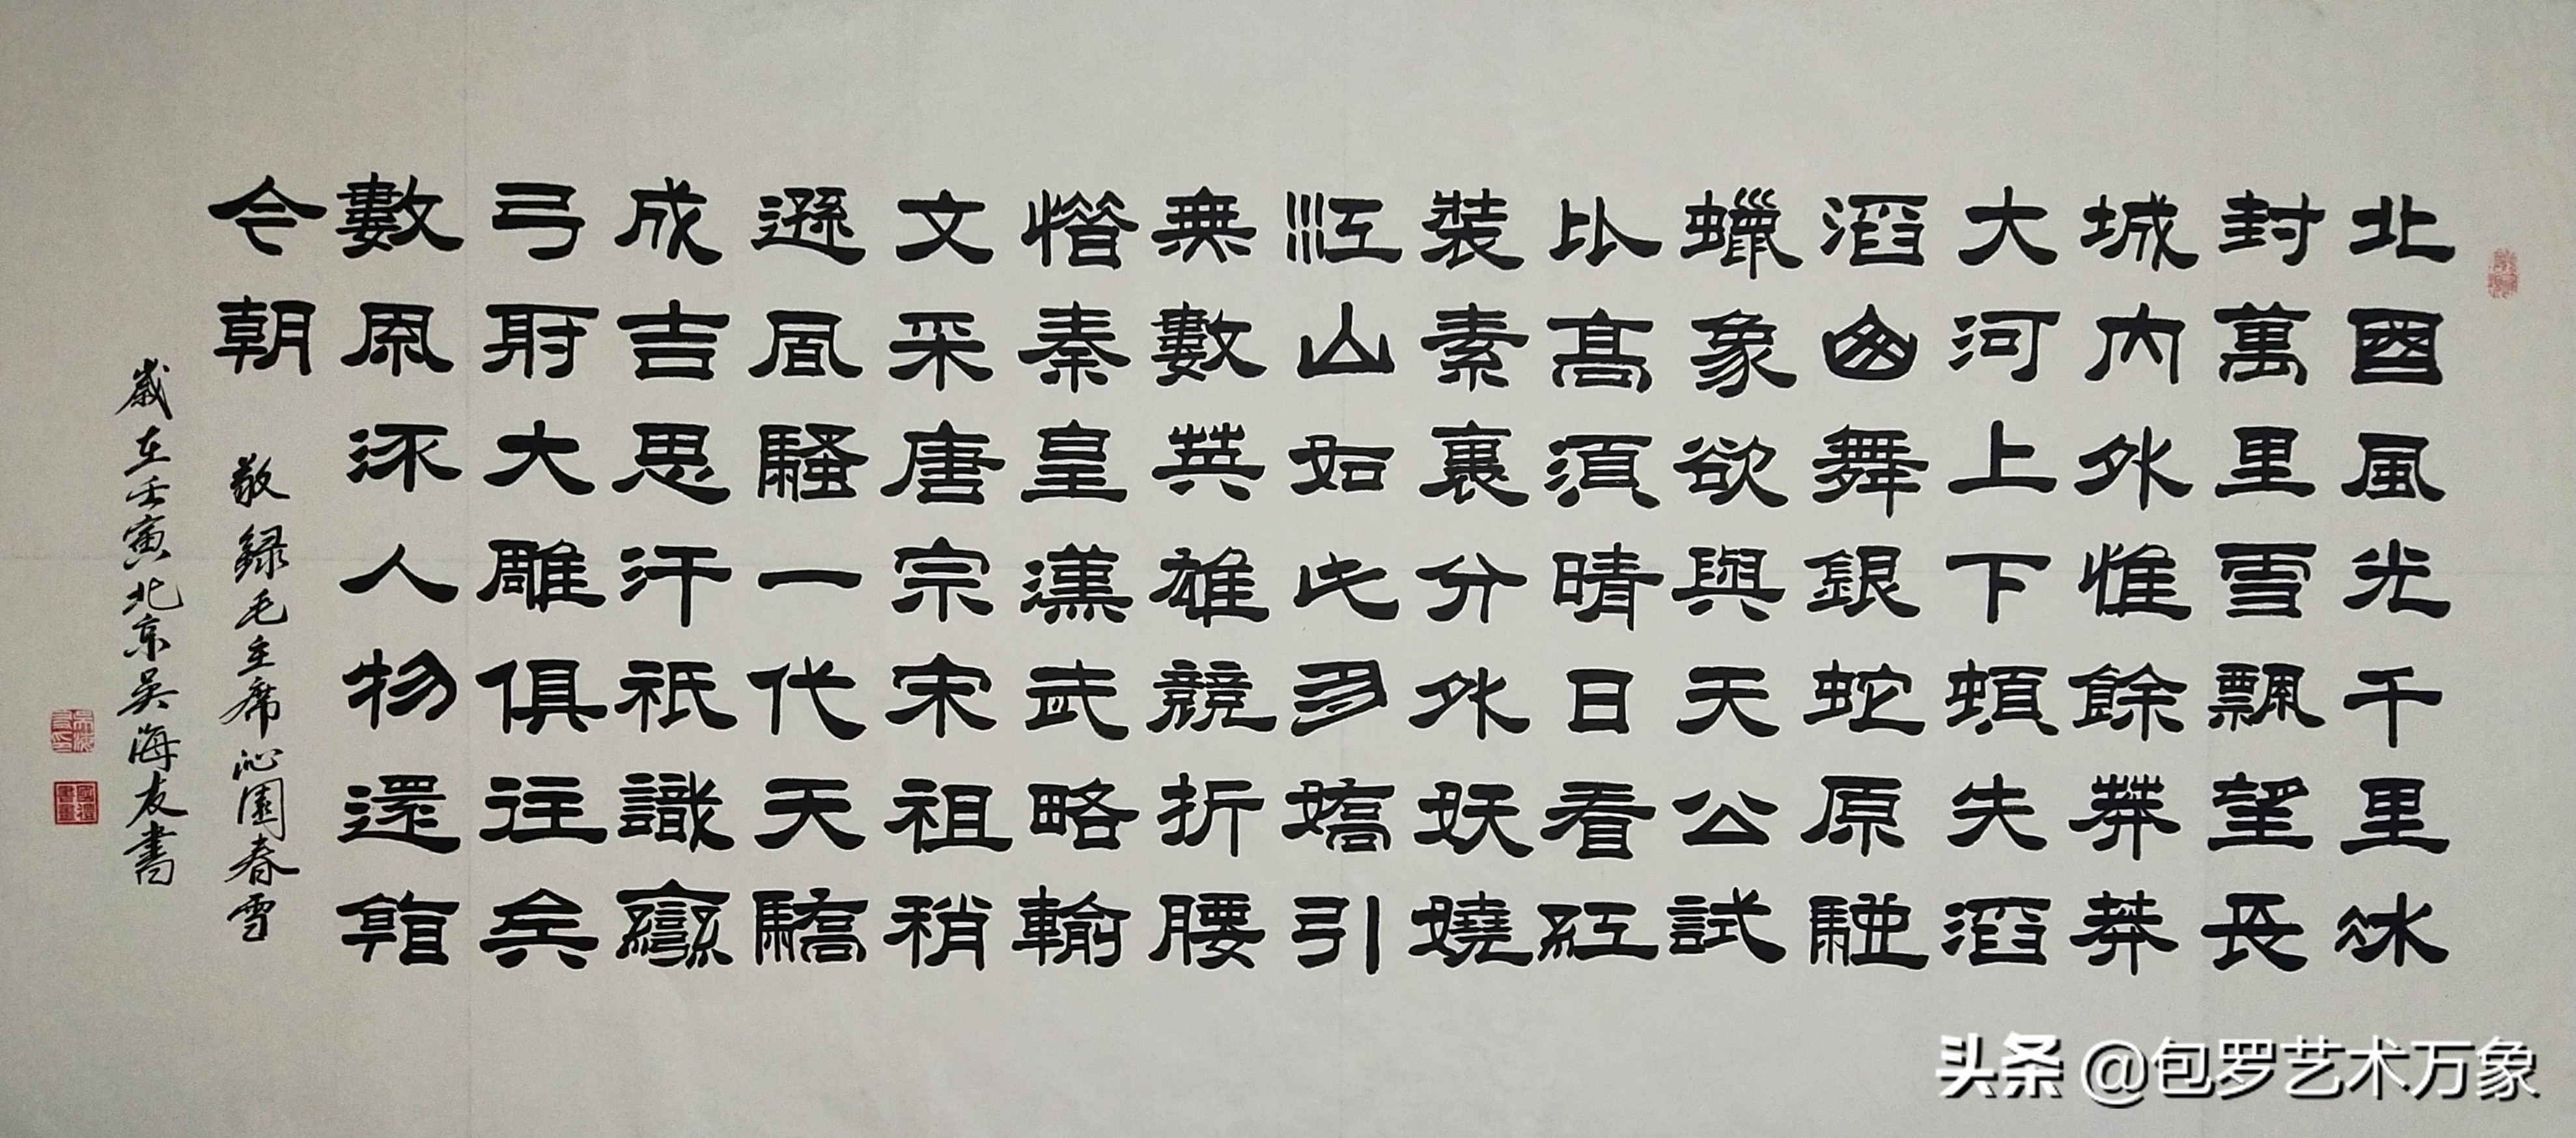 北國風光千里冰
封萬里雪飄望長
城內外惟餘莽莽
大河上下頓失滔
滔山舞銀蛇原馳
蠟象欲與天公試
比高須晴日看紅
裝素裹分外妖嬈
江山如此多嬌引
無數英雄競折腰
惜秦皇漢武略輸
文采唐宗宋祖稍
遜風騷一代天驕
成吉思汗祇識彎
弓射大雕俱往矣
數風流人物還看
今朝
敬録毛主席沁園春雪
歲在壬寅北京吳海友書
头条 @包罗艺术万象